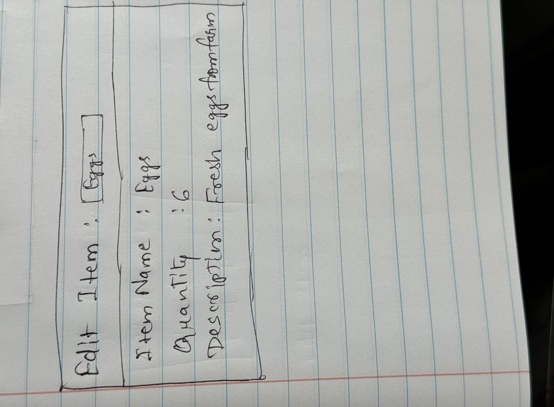 Edit Item : Eggs
Item Name : Eggs
Quantity : 6
Description : Fresh eggs from farm